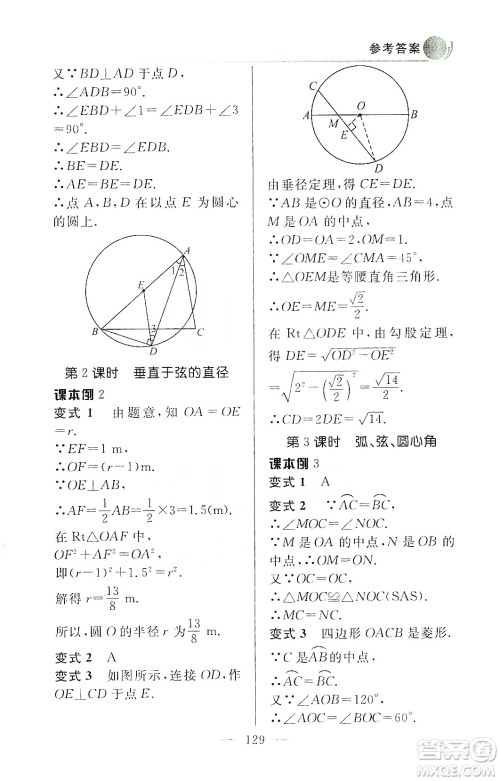 参考答案
又∵BD⊥AD于点D,
∴∠ADB=90°.
∴∠EBD+∠1=∠EBD+∠3
=90°.
∴∠EBD=∠EDB.
∴BE=DE.
∴AE=BE=DE.
∴点A,B,D在以点E为圆心
的圆上.
A
1 2
E
3
B
D
C
第2课时 垂直于弦的直径
课本例2
变式1 由题意,知OA=OE
=r.
∵EF=1 m,
∴OF=(r-1) m.
∵OE⊥AB,
∴AF=1/2AB=1/2×3=1.5(m).
在Rt△OAF中,
OF²+AF²=OA²,
即(r-1)²+1.5²=r².
解得r=13/8 m.
所以,圆O的半径r为13/8 m.
变式2 A
变式3 如图所示,连接OD,作
OE⊥CD于点E.
C
O
A
M
B
E
D
由垂径定理,得CE=DE.
∵AB是⊙O的直径,AB=4,点
M是OA的中点,
∴OD=OA=2,OM=1.
∵∠OME=∠CMA=45°,
∴△OEM是等腰直角三角形.
∴OE=ME=√2/2.
在Rt△ODE中,由勾股定理,
得DE=√(OD²-OE²)
=√(2²-(√2/2)²)=√14/2.
∴CD=2DE=√14.
第3课时 弧、弦、圆心角
课本例3
变式1 A
变式2 ∵A͡C=B͡C,
∴∠MOC=∠NOC.
∵M是OA的中点,N是OB的
中点,
∴OM=ON.
又∵OC=OC,
∴△MOC≌△NOC(SAS).
∴MC=NC.
变式3 四边形OACB是菱形.
∵C是A͡B的中点,
∴A͡C=B͡C.
又∵∠AOB=120°,
∴∠AOC=∠BOC=60°.
129
答案圈
MXQE.COM